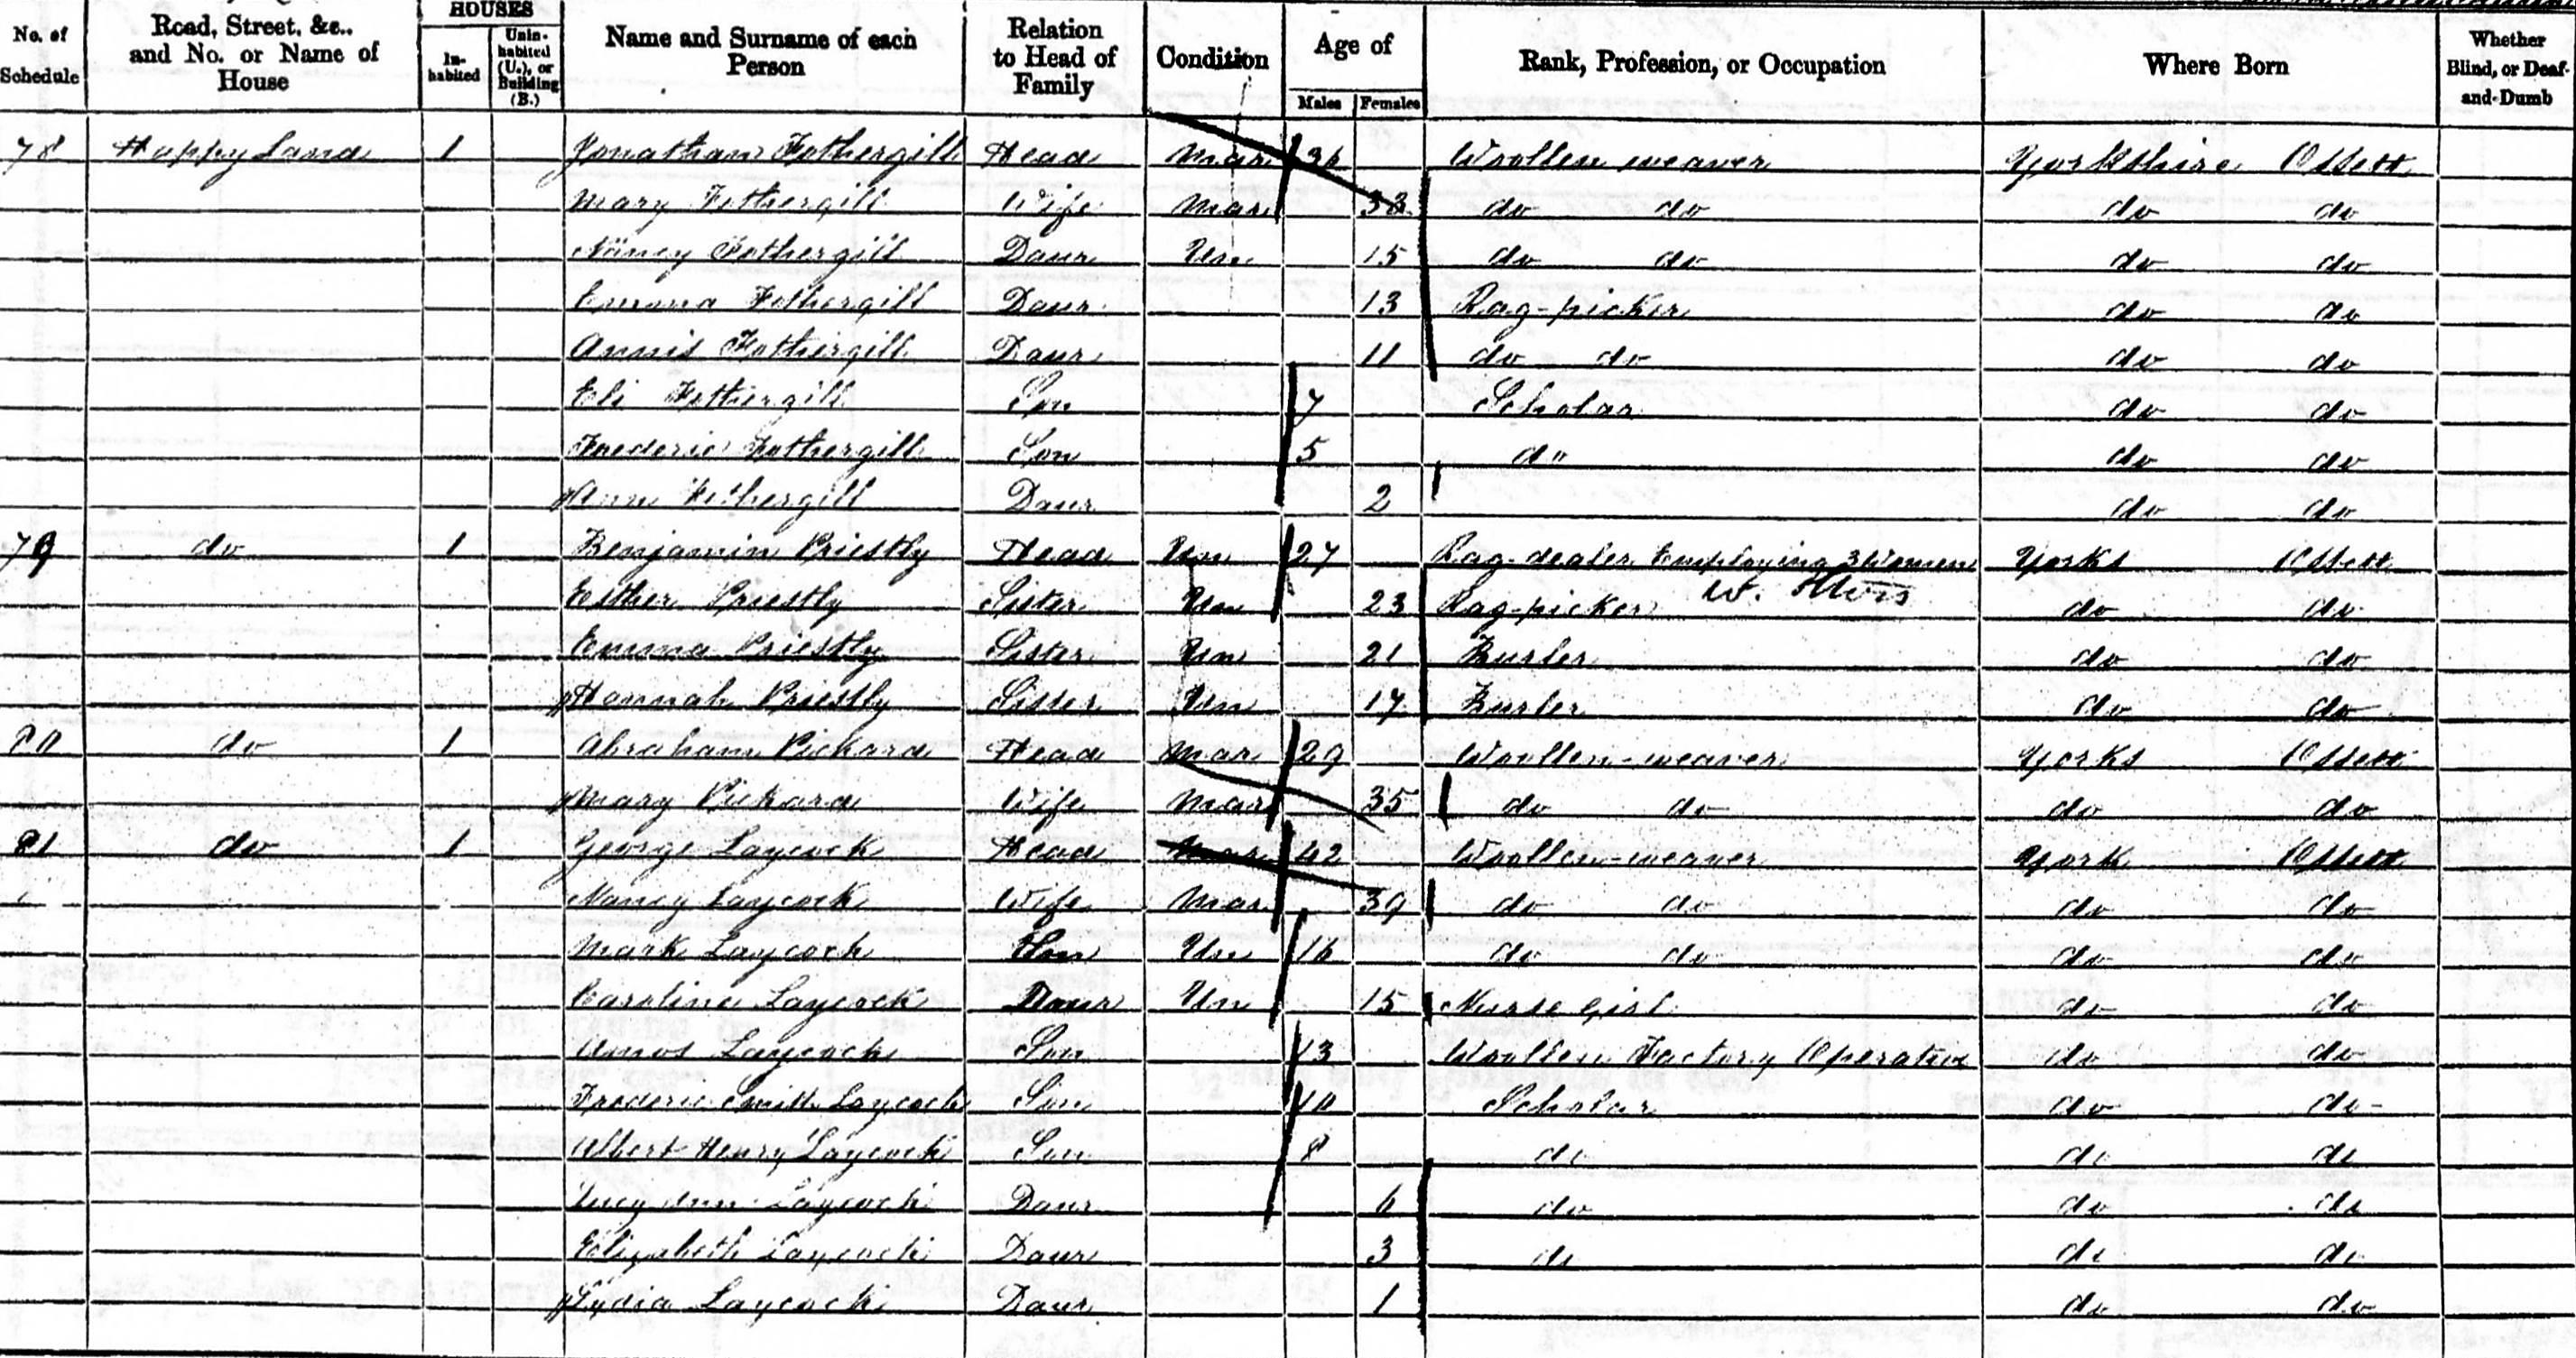 No. of Schedule | Road, Street, &c., and No. or Name of House | HOUSES In-habited | Unin-habited (U.), or Building (B.) | Name and Surname of each Person | Relation to Head of Family | Condition | Age of Males | Females | Rank, Profession, or Occupation | Where Born | Whether Blind, or Deaf-and-Dumb
78 Happy Land 1 Jonathan Fothergill Head Mar 36 Woollen weaver Yorkshire Ossett
Mary Fothergill Wife Mar 38 do do do do
Nancy Fothergill Daur Un 15 do do do do
Emma Fothergill Daur 13 Rag-picker do do
Annis Fothergill Daur 11 do do do do
Eli Fothergill Son 7 Scholar do do
Frederic Fothergill Son 5 do do do
Ann Fothergill Daur 2 do do
79 do 1 Benjamin Priestly Head Un 27 Rag-dealer Employing 3 Women Yorks Ossett
Esther Priestly Sister Un 23 Rag-picker do do
Emma Priestly Sister Un 21 Burler do do
Hannah Priestly Sister Un 17 Burler do do
80 do 1 Abraham Pickard Head Mar 29 Woollen-weaver Yorks Ossett
Mary Pickard Wife Mar 35 do do do do
81 do 1 George Laycock Head Mar 42 Woollen-weaver York Ossett
Nancy Laycock Wife Mar 39 do do do do
Mark Laycock Son Un 16 do do do do
Caroline Laycock Daur Un 15 Nurse girl do do
Amos Laycock Son 13 Woollen Factory Operative do do
Frederic Smith Laycock Son 10 Scholar do do
Albert Henry Laycock Son 8 do do do
Lucy Ann Laycock Daur 6 do do do
Elizabeth Laycock Daur 3 do do do
Lydia Laycock Daur 1 do do